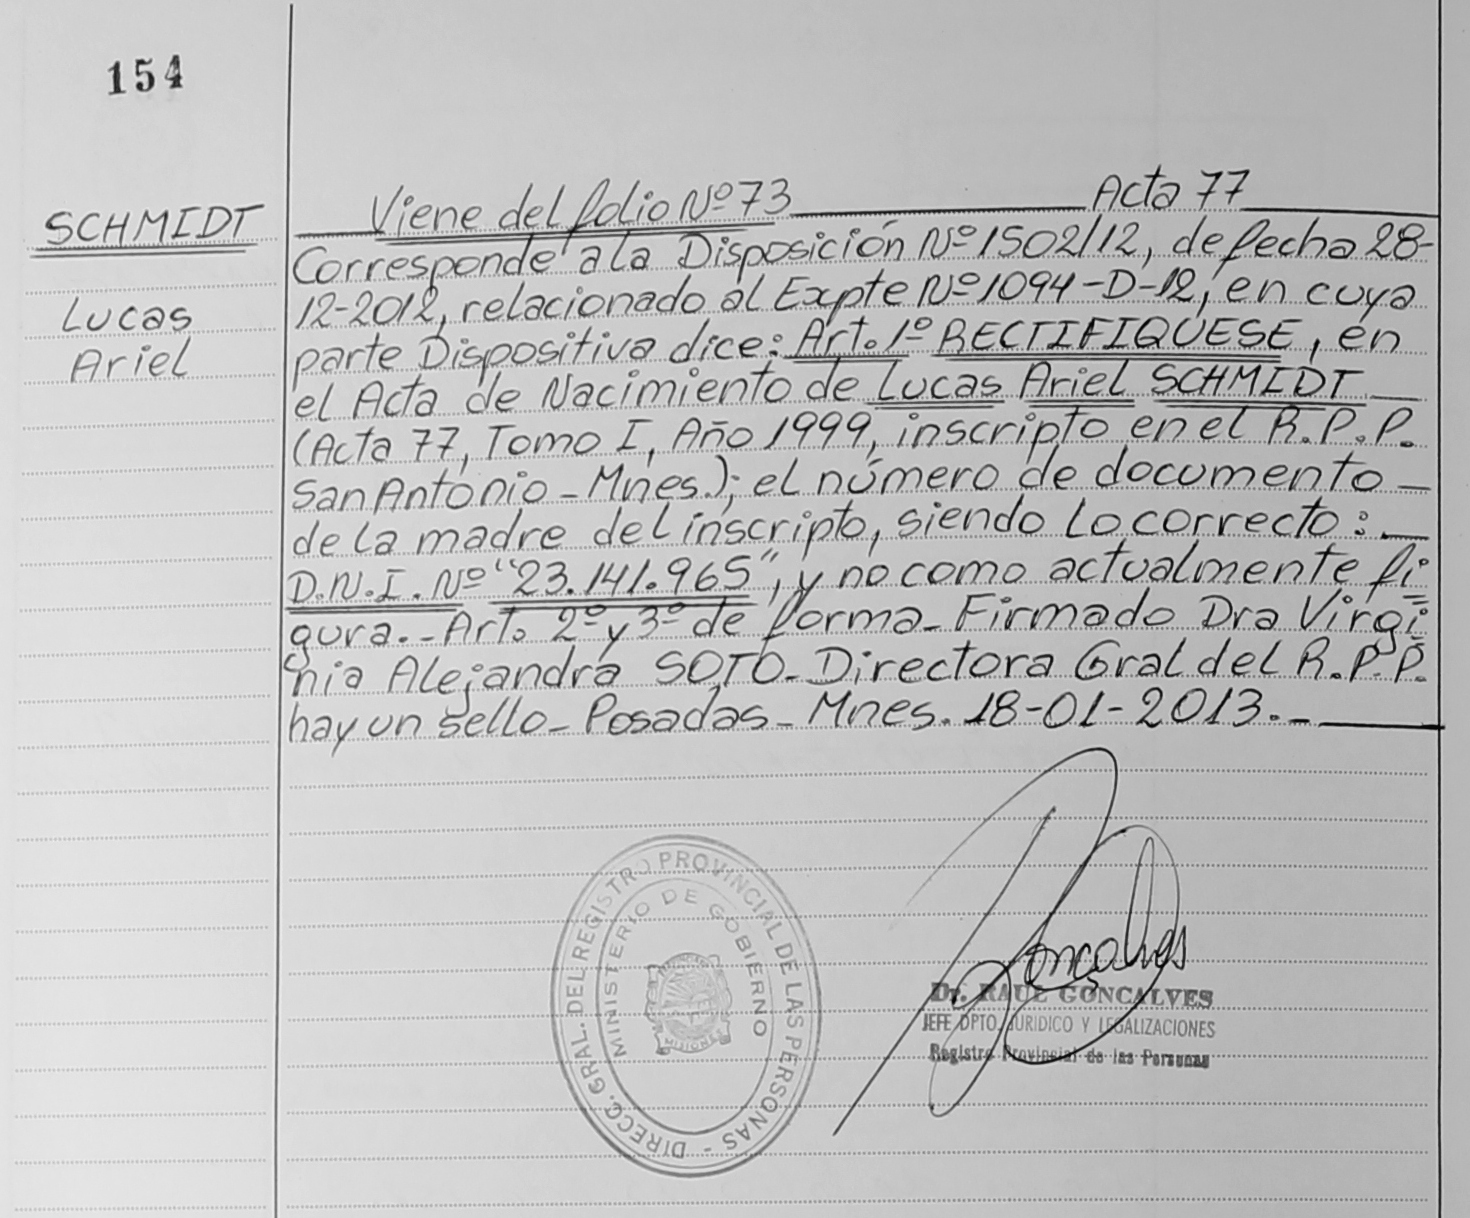 154
SCHMIDT
Lucas
Ariel
Viene del folio Nº 73 Acta 77
Corresponde a la Disposición Nº 1502/12, de fecha 28-
12-2012, relacionado al Expte Nº 1094-D-12, en cuya
parte Dispositiva dice: Art. 1º RECTIFIQUESE, en
el Acta de Nacimiento de Lucas Ariel SCHMIDT
(Acta 77, Tomo I, Año 1999, inscripto en el R.P.P.
San Antonio - Mnes.); el número de documento
de la madre del inscripto, siendo lo correcto:
D.N.I. Nº "23.141.965", y no como actualmente fi
gura.- Art. 2º y 3º de forma- Firmado Dra Virgi
nia Alejandra SOTO- Directora Gral del R.P.P.
hay un sello- Posadas- Mnes. 18-01-2013.-
DIRECC. GRAL. DEL REGISTRO PROVINCIAL DE LAS PERSONAS -
MINISTERIO DE GOBIERNO
MISIONES
Goncalves
Dr. RAUL GONCALVES
JEFE DPTO. JURIDICO Y LEGALIZACIONES
Registro Provincial de las Personas